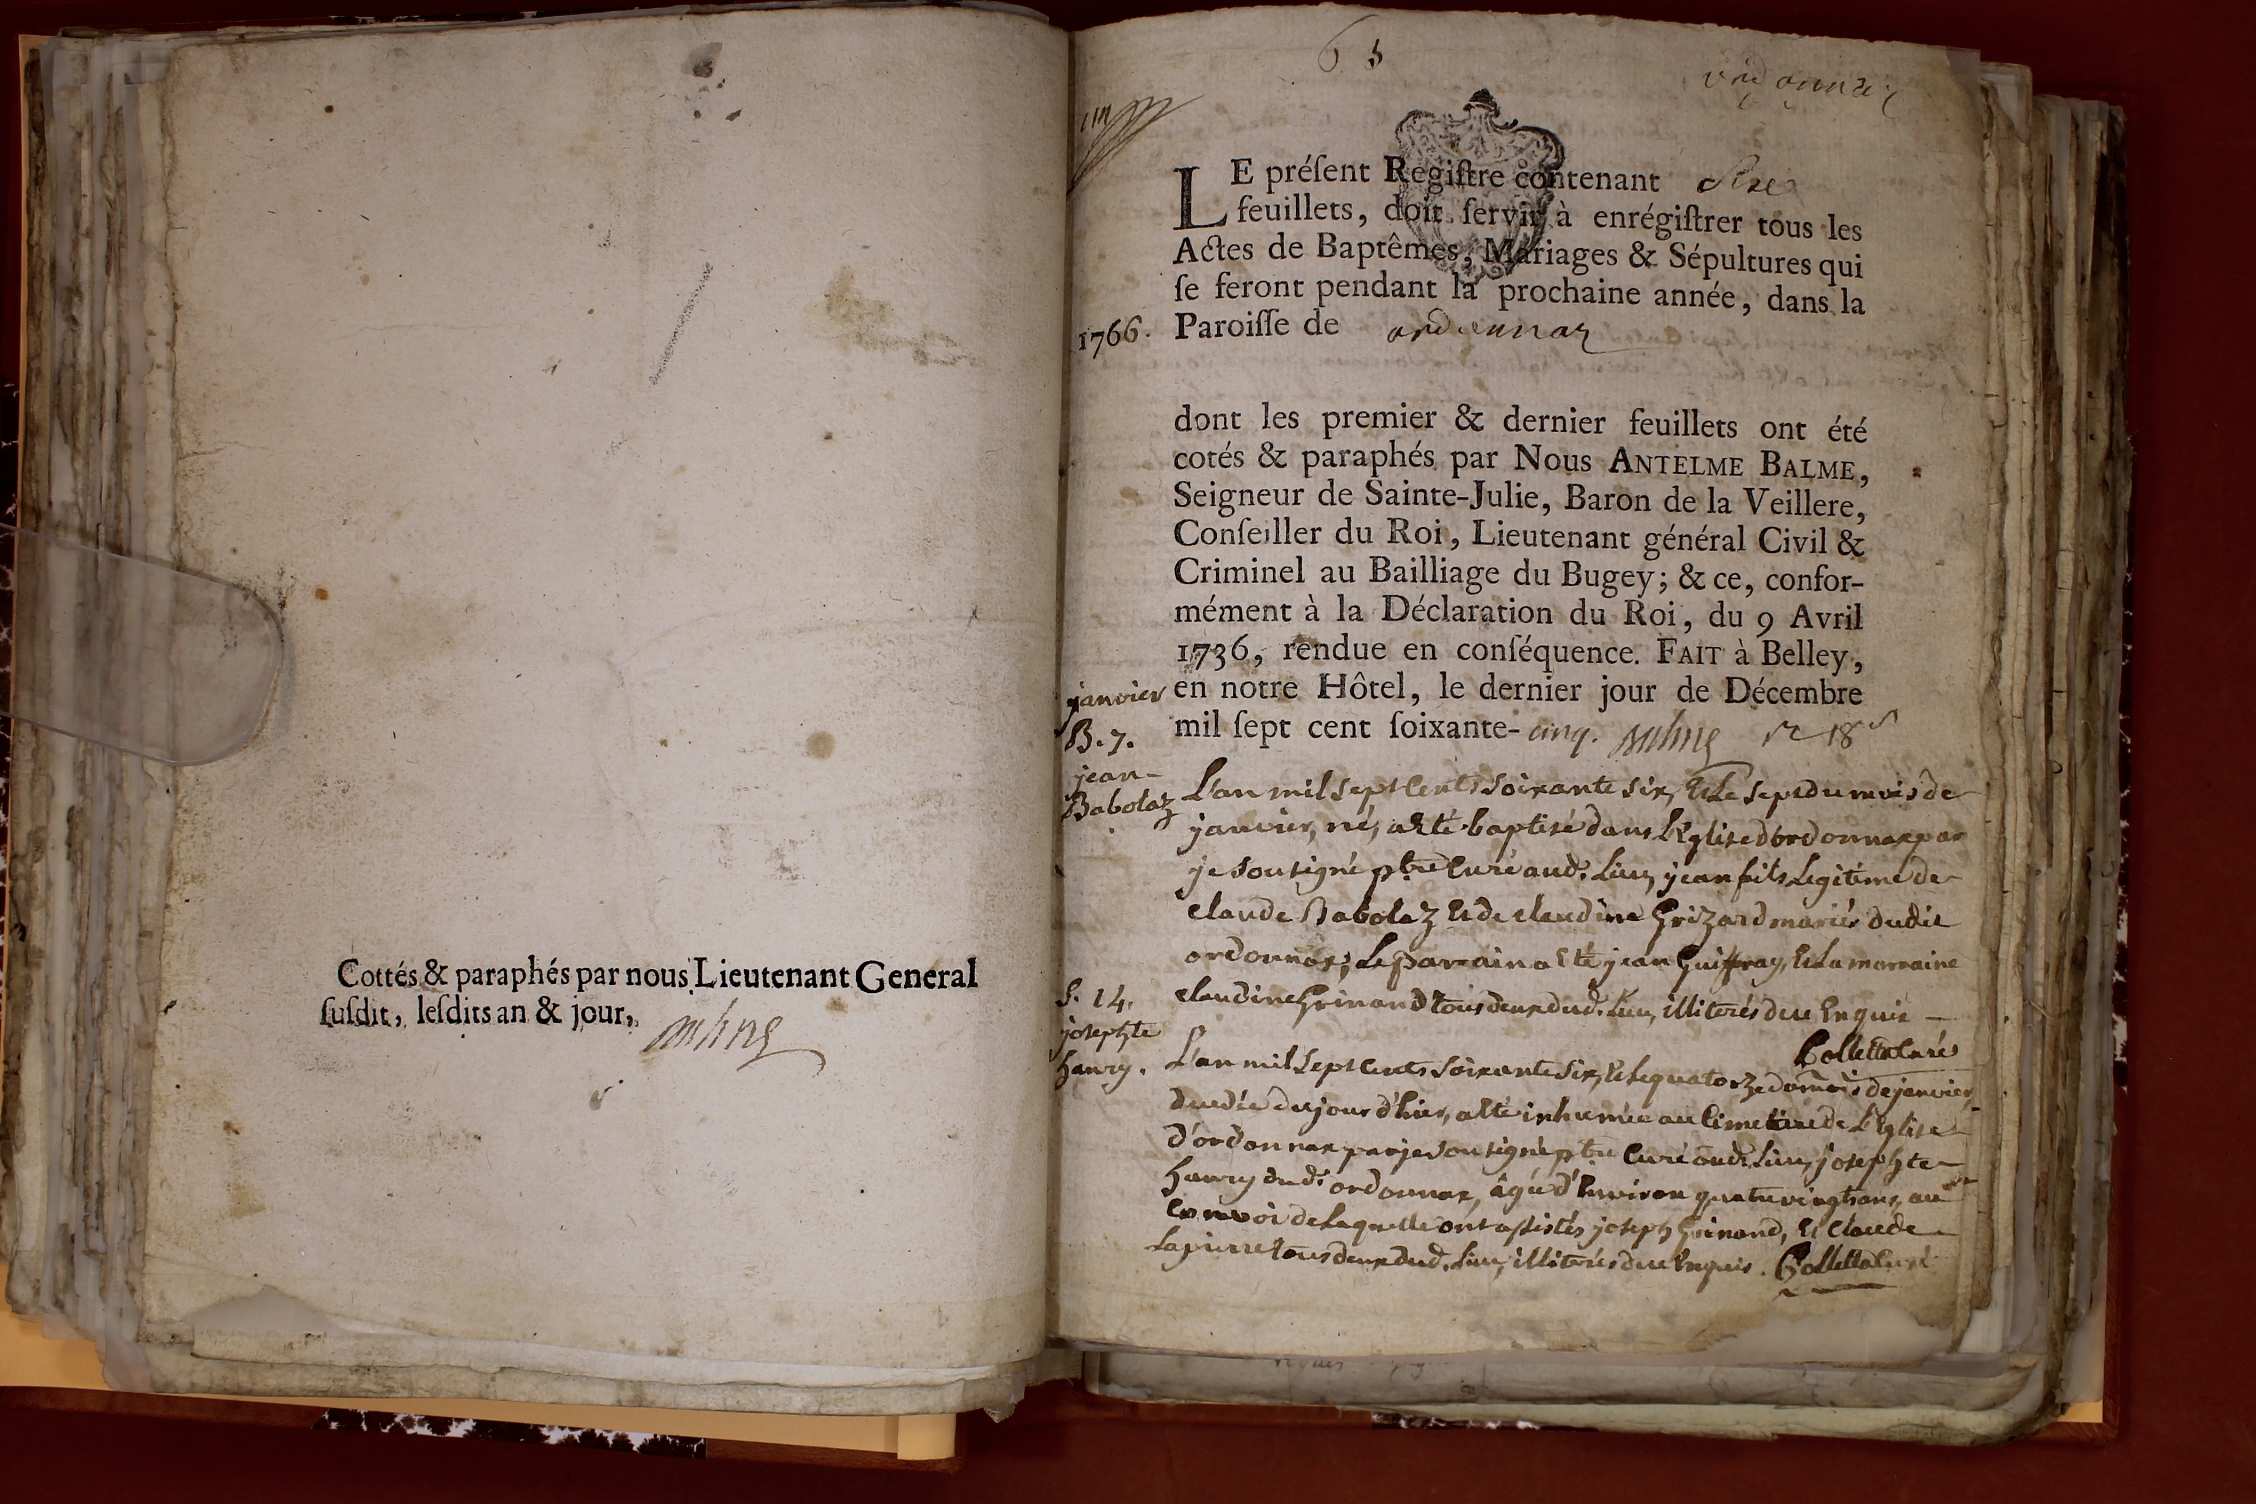 Cottés & paraphés par nous Lieutenant General
ſuſdit, leſdits an & jour,
Balme
65
ordonnaz
LE préſent Regiſtre contenant
feuillets, doit ſervir à enrégiſtrer tous les
Actes de Baptêmes, Mariages & Sépultures qui
ſe feront pendant la prochaine année, dans la
1766. Paroiſſe de ordonnaz
dont les premier & dernier feuillets ont été
cotés & paraphés par Nous ANTELME BALME,
Seigneur de Sainte-Julie, Baron de la Veillere,
Conſeiller du Roi, Lieutenant général Civil &
Criminel au Bailliage du Bugey; & ce, confor-
mément à la Déclaration du Roi, du 9 Avril
1736, rendue en conſéquence. FAIT à Belley,
en notre Hôtel, le dernier jour de Décembre
mil ſept cent ſoixante-cinq. Balme
janvier
B. 7.
jean
Babolaz
L'an mil sept cents soixante six, et le sept du mois de
janvier, né, a eté baptisé dans l'Eglise d'ordonnax par
je soussigné ptre curé aud. lieu, jean fils legitime de
claude Babolaz et de claudine Grizard mariés dudit
ordonnax; le parrain a eté jean Guiffray, et la marraine
claudine Grinand tous deux dud. lieu, illiterés de ce enquis
Collettaz curé
S. 14.
josephte
hanry.
L'an mil sept cents soixante six, et le quatorze du mois de janvier,
decedée du jour d'hier, a eté inhumée au cimetiere de l'Eglise
d'ordonnax par je soussigné ptre curé aud. lieu, josephte
hanry dud. ordonnax, âgée d'environ quatre vingt ans, au
convoi de laquelle ont assistés joseph Grinand, et claude
Lapierre tous deux dud. lieu, illiterés de ce enquis. Collettaz curé